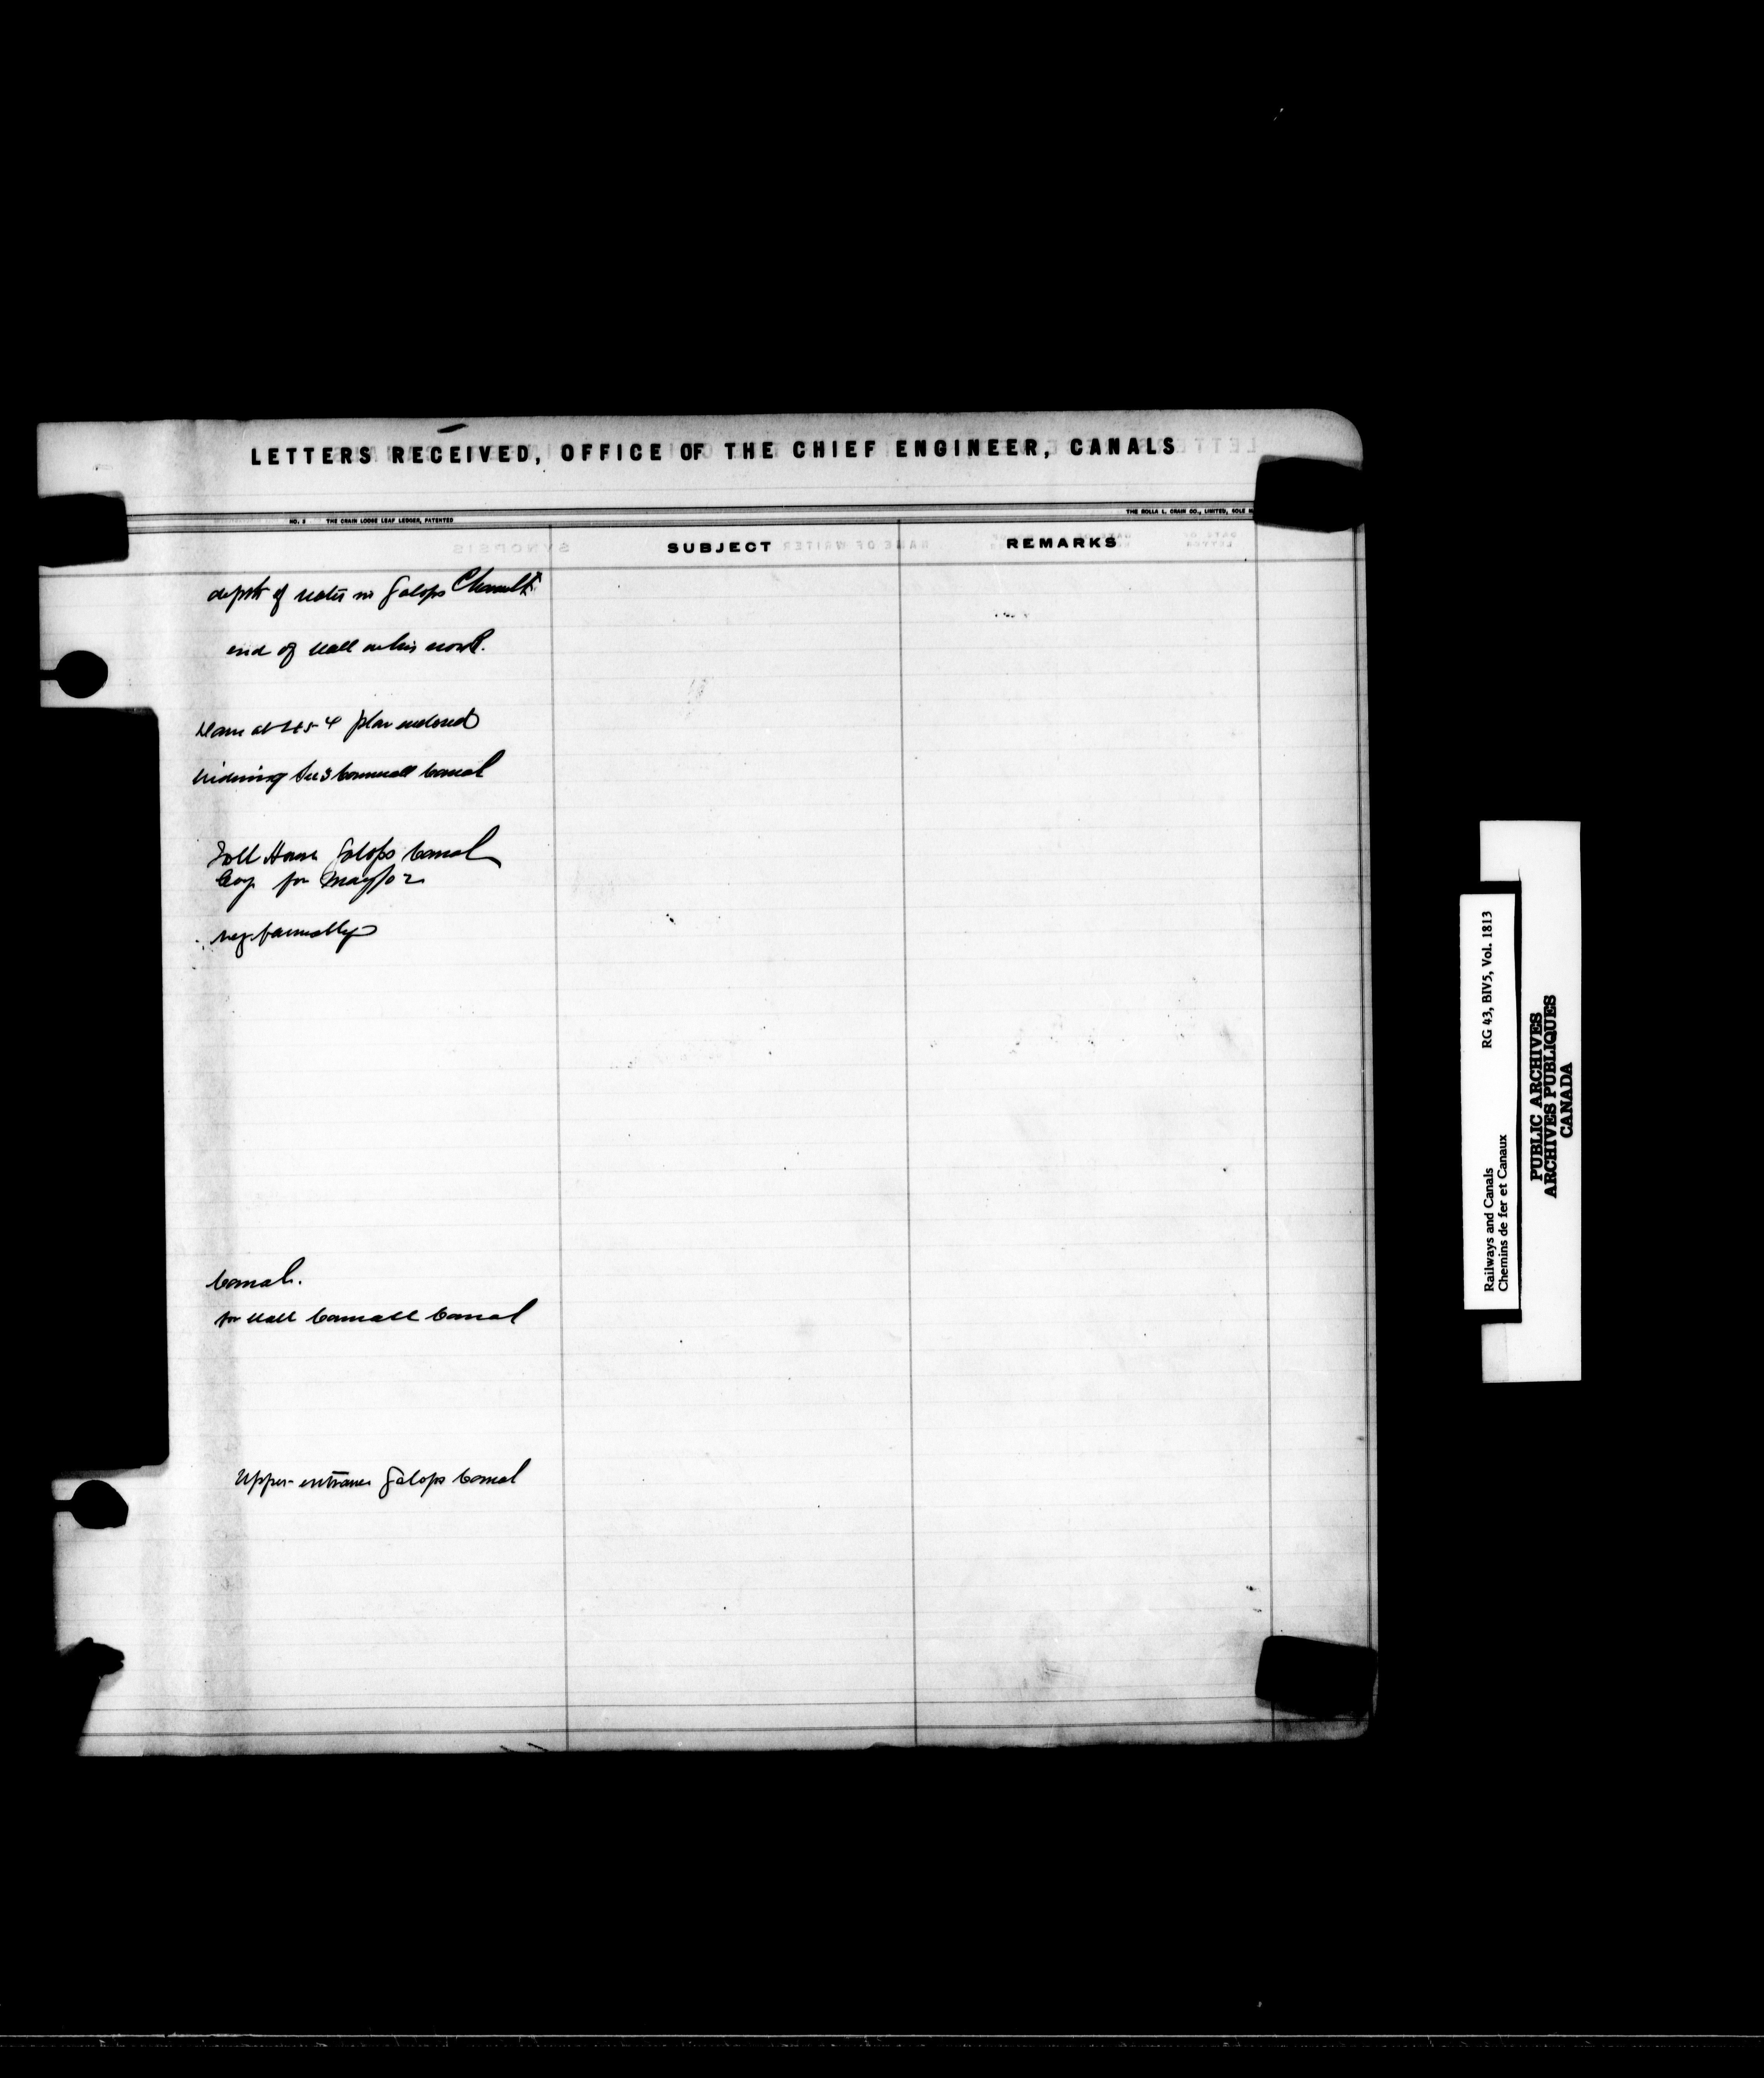 LETTERS RECEIVED, OFFICE OF THE CHIEF ENGINEER, CANALS
NO. 2 THE CRAIN LOOSE LEAF LEDGER, PATENTED
THE ROLLA L. CRAIN CO., LIMITED, SOLE
SUBJECT
REMARKS
depth of water in Galops
end of wall on his work.
at plan enclosed
widening Sec 3 Cornwall Canal
Toll House Galops Canal
for May/02
Canal.
for wall Cornwall Canal
Upper entrance Galops Canal
Railways and Canals RG 43, BIV5, Vol. 1813
Chemins de fer et Canaux
PUBLIC ARCHIVES
ARCHIVES PUBLIQUES
CANADA